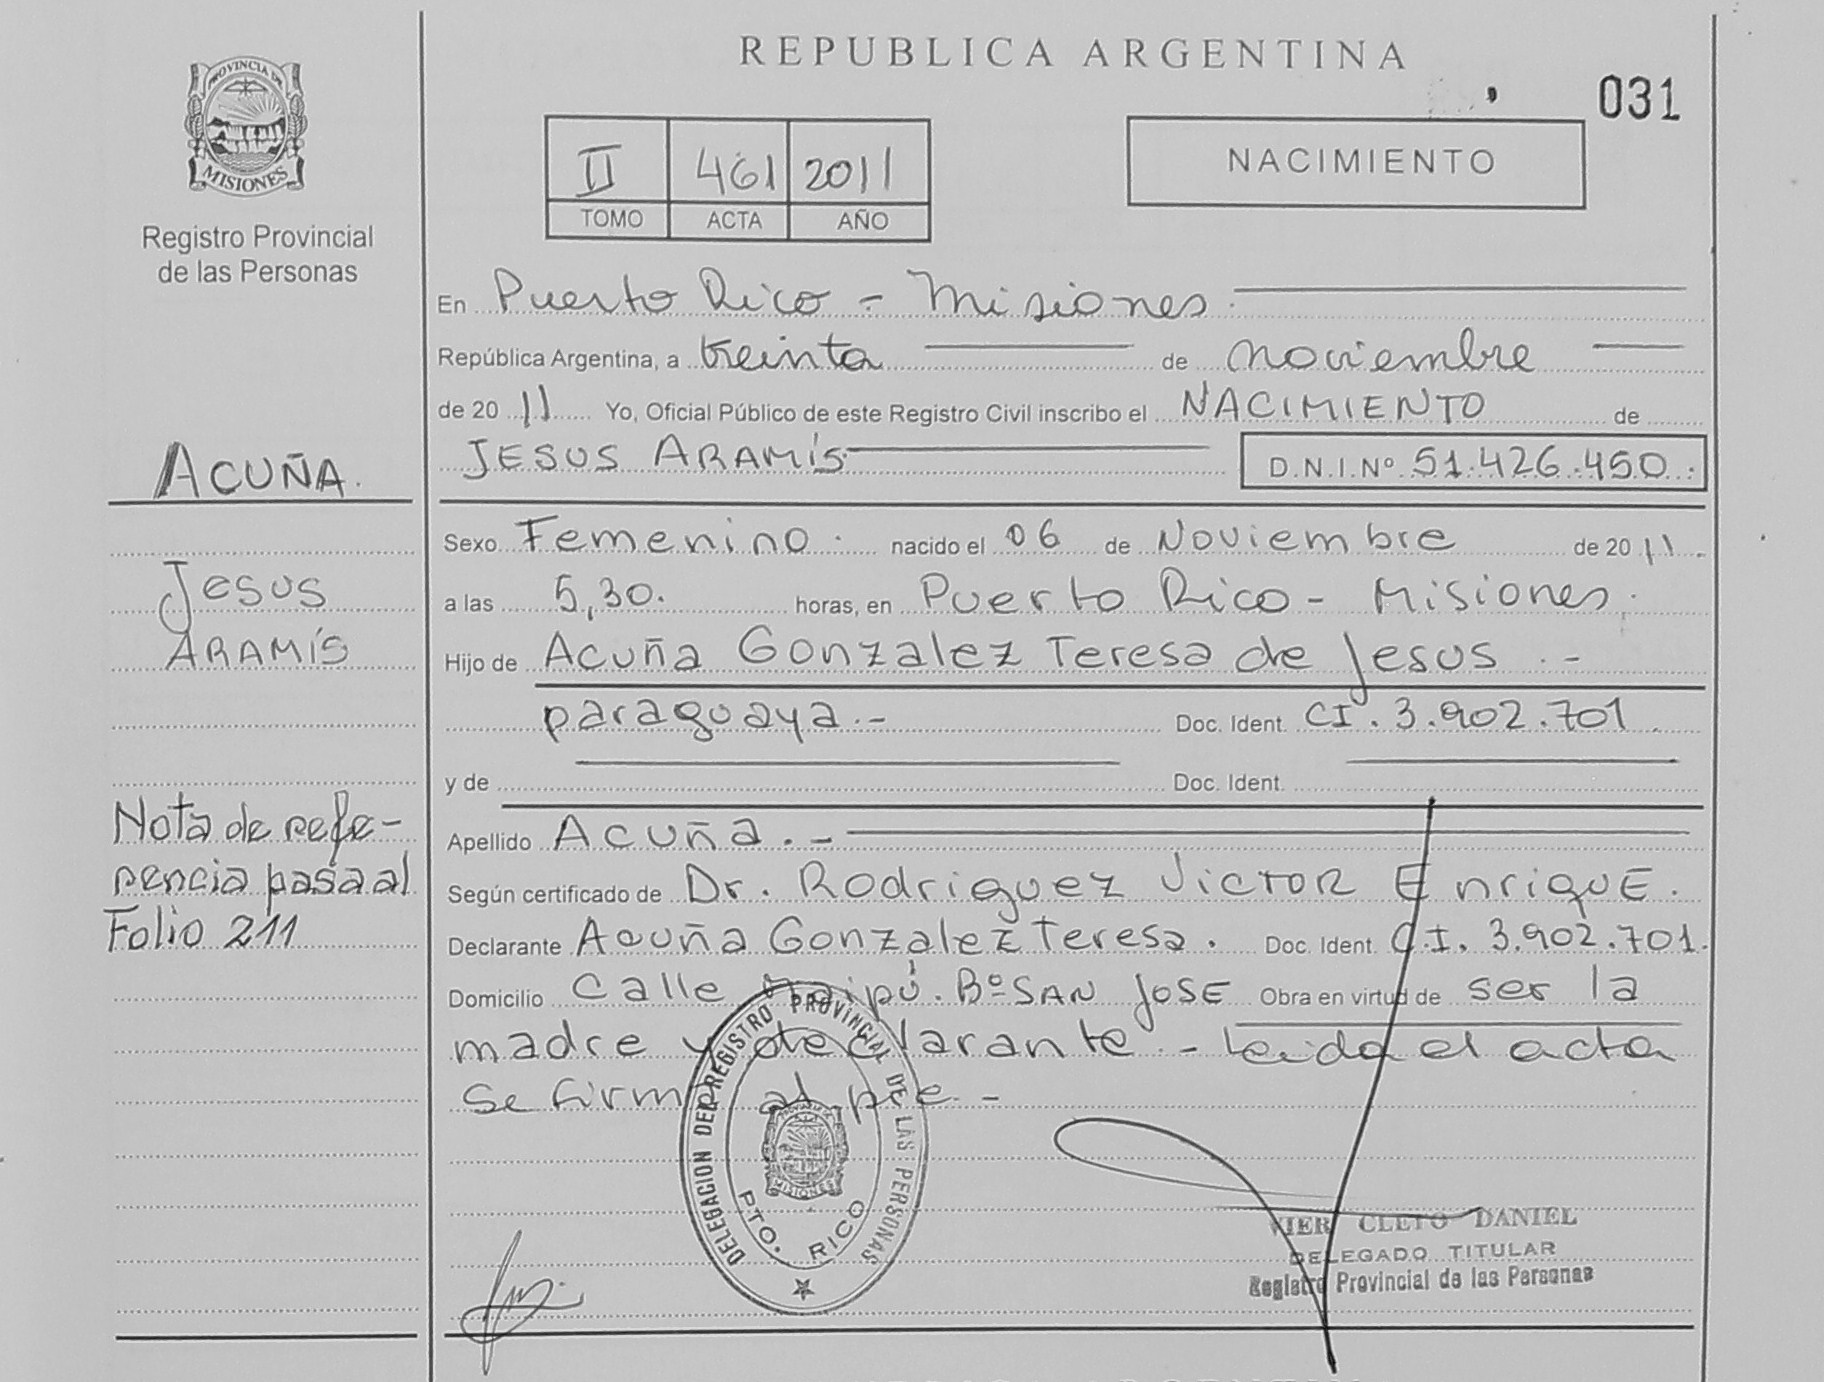 REPUBLICA ARGENTINA
031
PROVINCIA DE
MISIONES
Registro Provincial
de las Personas
II 461 2011
TOMO ACTA AÑO
NACIMIENTO
En Puerto Rico - Misiones.
República Argentina, a treinta de noviembre
de 20 11 Yo, Oficial Público de este Registro Civil inscribo el NACIMIENTO de
JESUS ARAMÍS D.N.I.Nº 51.426.450.
ACUÑA.
Jesus
ARAMÍS
Nota de refe-
rencia pasa al
Folio 211
Sexo Femenino. nacido el 06 de Noviembre de 20 11.
a las 5,30. horas, en Puerto Rico - Misiones.
Hijo de Acuña Gonzalez Teresa de Jesus.-
paraguaya.- Doc. Ident. CI. 3.902.701
y de Doc. Ident.
Apellido Acuña.-
Según certificado de Dr. Rodriguez Victor Enrique.
Declarante Acuña Gonzalez Teresa. Doc. Ident. C.I. 3.902.701.
Domicilio Calle Maipú. Bº SAN JOSE Obra en virtud de ser la
madre y declarante.- Leida el acta
se firma al pie.-
DELEGACION DEL REGISTRO PROVINCIAL DE LAS PERSONAS
PROVINCIA DE
MISIONES
PTO. RICO
VIER CLETO DANIEL
DELEGADO TITULAR
Registro Provincial de las Personas